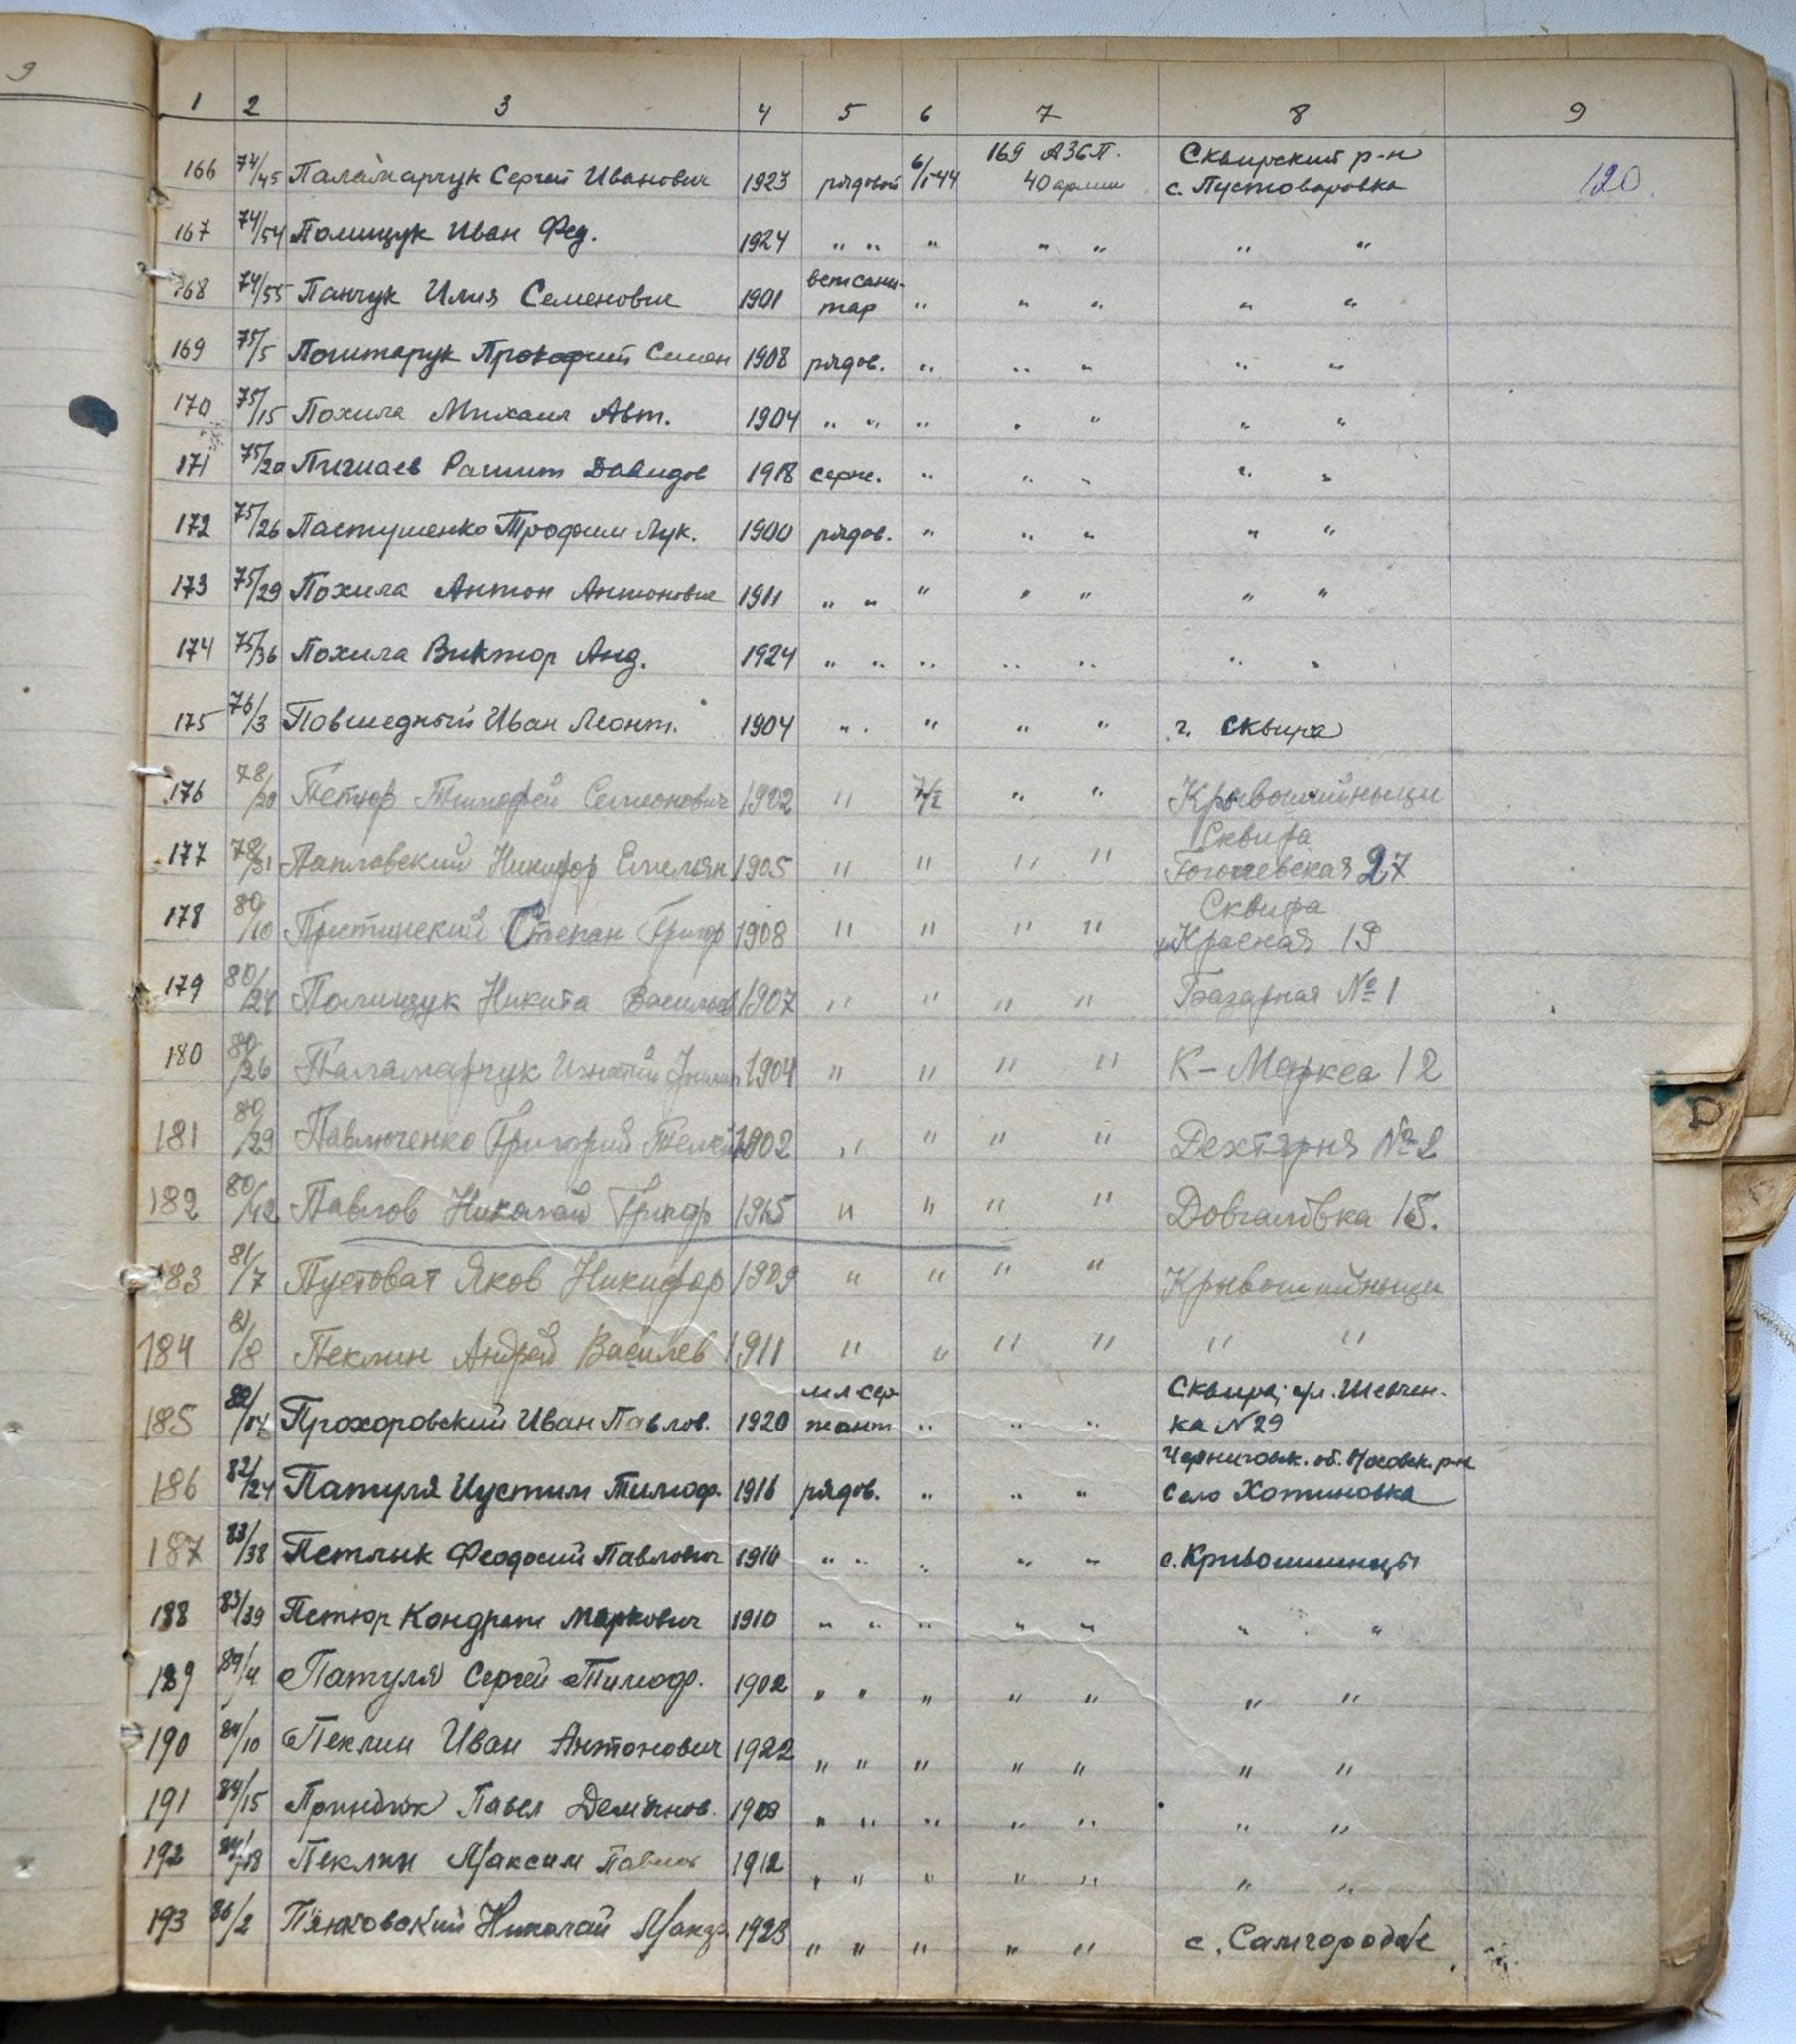 9
1 2 3 4 5 6 7 8 9
166 74/45 Паламарчук Сергей Иванович 1923 рядовой 6/I-44 169 АЗСП. 40 армии Сквирский р-н с. Пустоваровка 120.
167 74/54 Полищук Иван Фед. 1924 " " " " " " "
168 74/55 Панчук Илия Семенович 1901 ветсани-тар " " " " "
169 75/5 Поштарук Прокофий Семен 1908 рядов. " " " " "
170 75/15 Похила Михаил Авт. 1904 " " " " " " "
171 75/20 Рашит Давидов 1918 серж. " " " " "
172 75/26 Пастушенко Трофим Лук. 1900 рядов. " " " " "
173 75/29 Похила Антон Антонович 1911 " " " " " " "
174 75/36 Похила Виктор Анд. 1924 " " " " " " "
175 76/3 Повшедный Иван Леонт. 1904 " " " " " г. Сквира
176 78/20 Петюр Тимофей Семенович 1902 " 7/I " " Крывошийныци
177 78/31 Павловский Никифор Емельян 1905 " " " " Сквира Гоголевская 27
178 80/10 Степан Григор 1908 " " " " Сквира Красная 19
179 80/24 Полищук Никита Васильев 1907 " " " " Базарная № 1
180 80/26 Паламарчук Игнатий 1904 " " " " К-Маркса 12
181 80/29 Павлюченко Григорий 1902 " " " " Дехтярня № 2
182 80/42 Павлов Николай Григор 1915 " " " " Довгалівка 15.
183 81/7 Пустоват Яков Никифор 1909 " " " " Крывошийныци
184 81/8 Пеклин Андрей Василев 1911 " " " " " "
185 Прохоровский Иван Павлов. 1920 мл сер-жант " " " Сквира, ул. Шевчен-ка N 29
186 82/24 Патуля Иустим Тимоф. 1916 рядов. " " " Черниговск. об. Носовск. р-н село Хотиновка
187 83/38 Петлык Феодосий Павлович 1910 " " " " " с. Кривошиинцы
188 83/39 Петюр Кондрат Маркович 1910 " " " " " " "
189 84/4 Патуля Сергей Тимоф. 1902 " " " " " " "
190 84/10 Пеклин Иван Антонович 1922 " " " " " " "
191 84/15 Приндюк Павел Демянов. 1908 " " " " " " "
192 84/18 Пеклин Максим Павлов 1912 " " " " " " "
193 86/2 Пянковский Николай 1923 " " " " " с. Самгородок